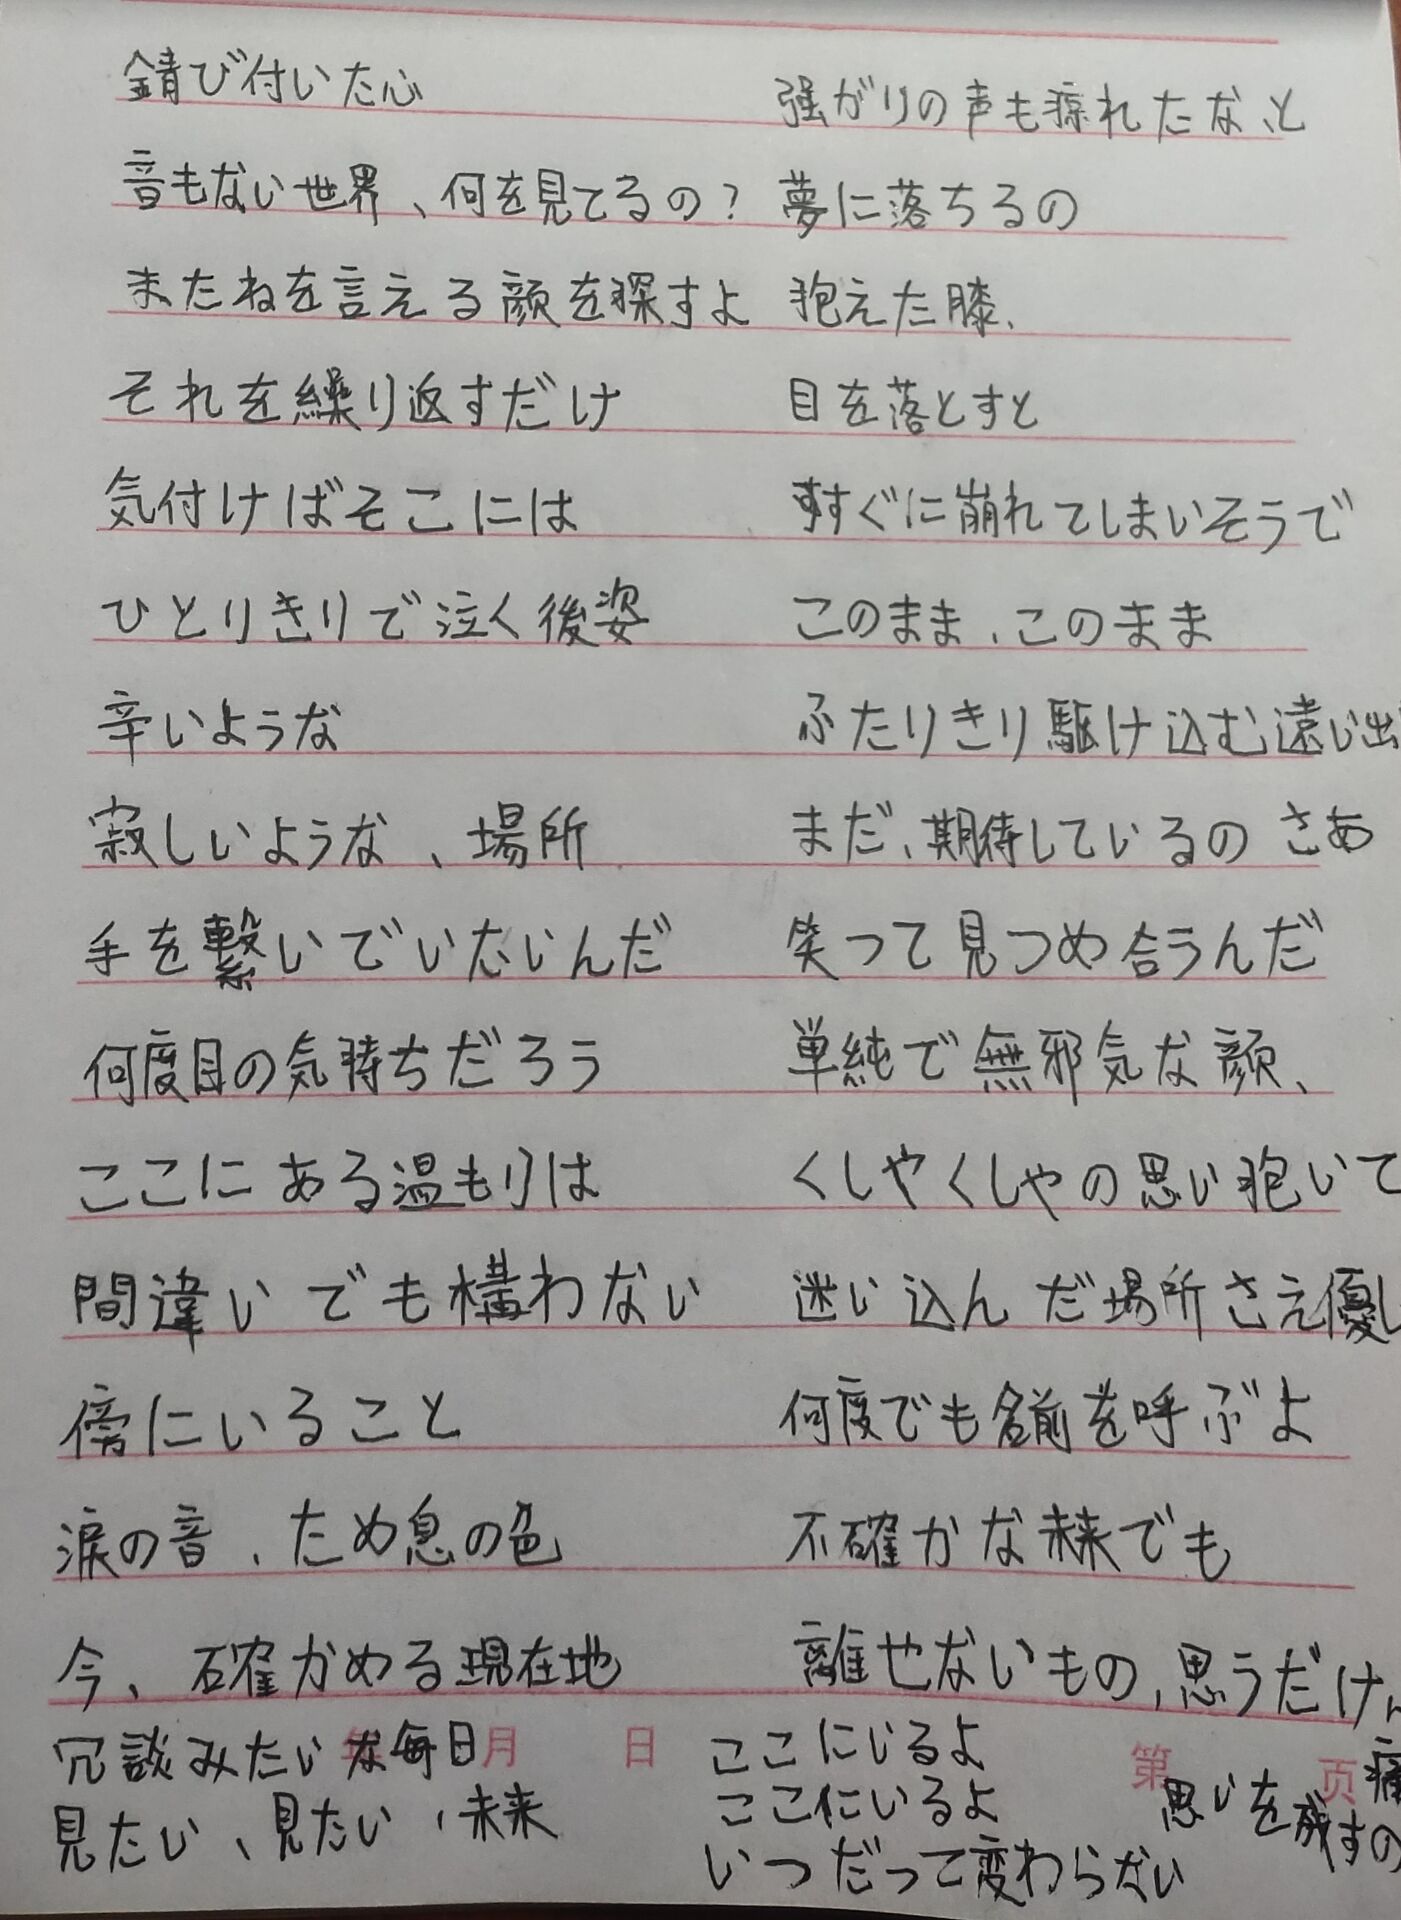 錆び付いた心
音もない世界、何を見てるの?
またねを言える顔を探すよ
それを繰り返すだけ
気付けばそこには
ひとりきりで泣く後姿
辛いような
寂しいような、場所
手を繋いでいたいんだ
何度目の気持ちだろう
ここにある温もりは
間違いでも構わない
傍にいること
涙の音、ため息の色
今、確かめる現在地
冗談みたいな毎日
見たい、見たい、未来
強がりの声も掠れたな、と
夢に落ちるの
抱えた膝、
目を落とすと
すぐに崩れてしまいそうで
このまま、このまま
ふたりきり駆け込む遠い出
まだ、期待しているの さあ
笑って見つめ合うんだ
単純で無邪気な顔、
くしゃくしゃの思い抱いて
迷い込んだ場所さえ優し
何度でも名前を呼ぶよ
不確かな未来でも
離せないもの、思うだけ
ここにいるよ
ここにいるよ
いつだって変わらない
痛
思いを成すの
年 月 日
第 页